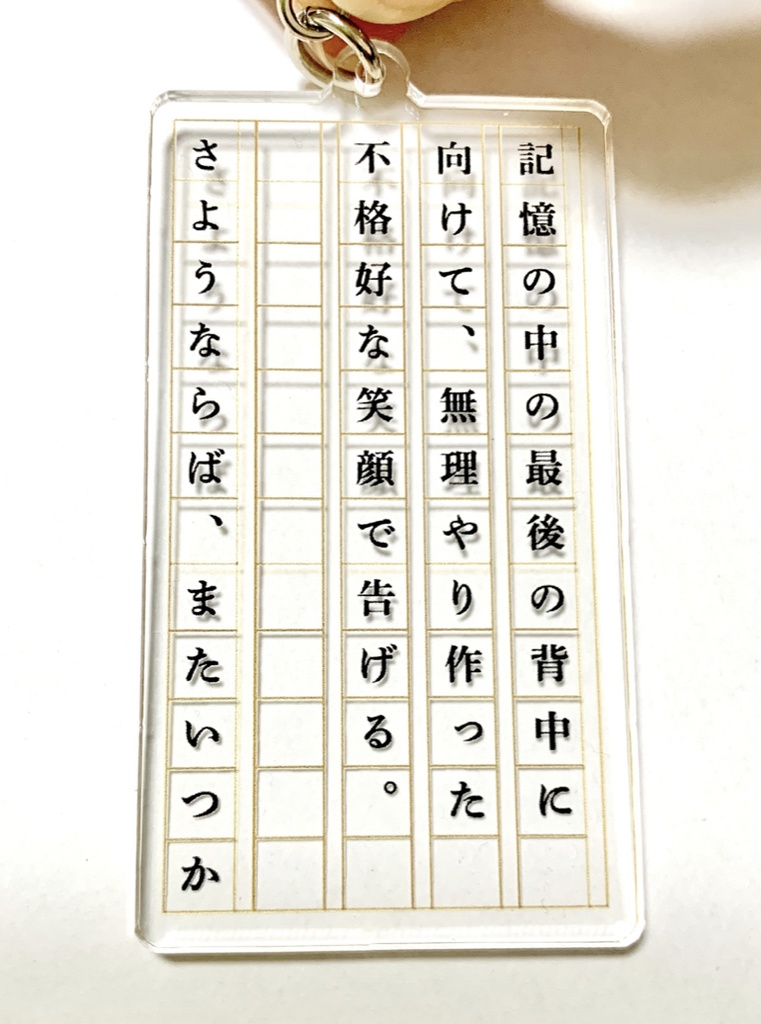 記憶の中の最後の背中に
向けて、無理やり作った
不格好な笑顔で告げる。
さようならば、またいつか